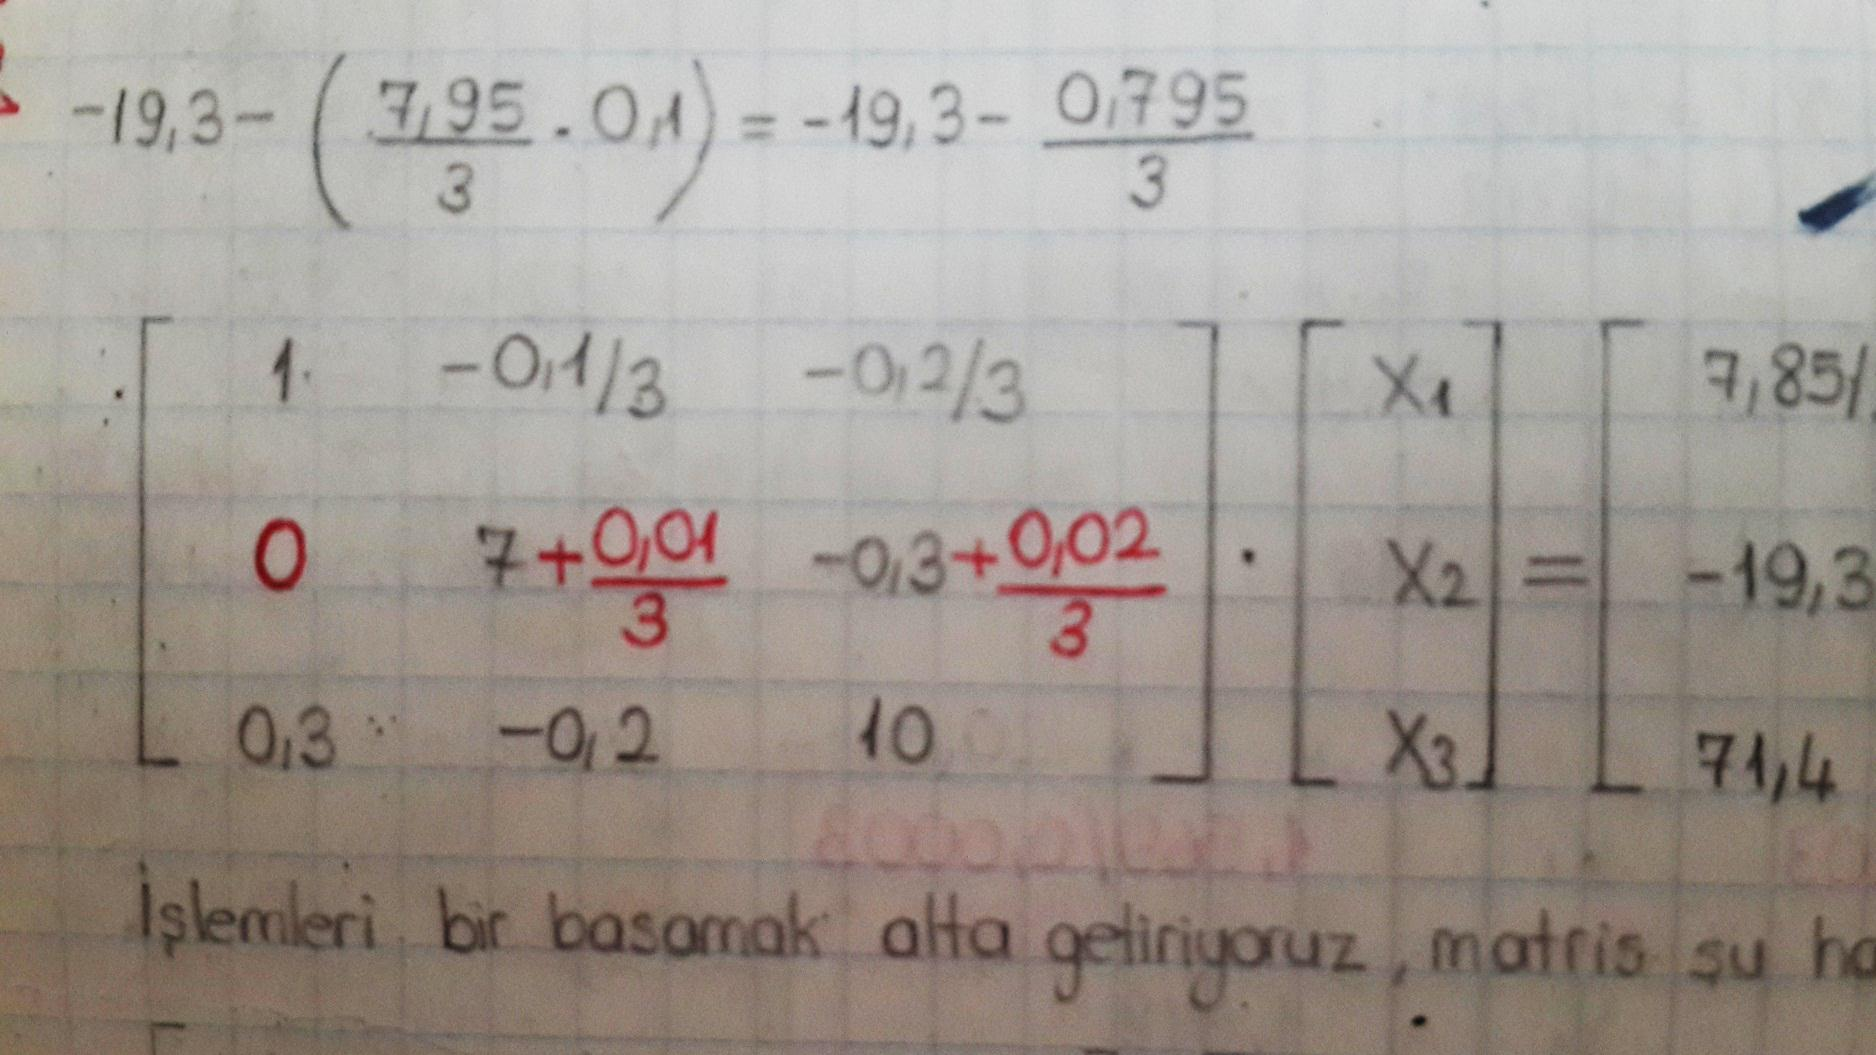 -19,3-(7,95/3 . 0,1) = -19,3- 0,795/3
1 -0,1/3 -0,2/3 X1 7,85/
0 7+0,01/3 -0,3+0,02/3 . X2 = -19,3
0,3 -0,2 10 X3 71,4
İşlemleri bir basamak alta getiriyoruz, matris şu ha